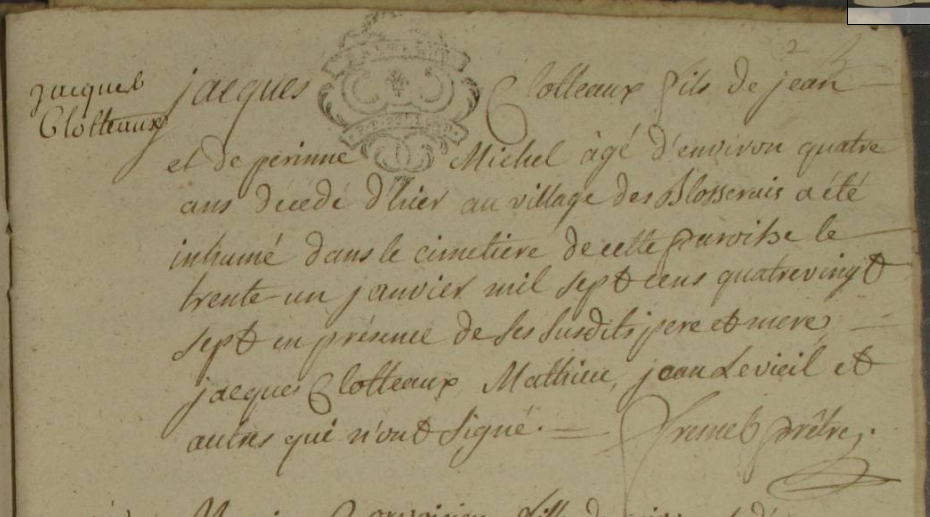 jacques
Clotteaux
jacques Clotteaux fils de jean
et de perinne Michel âgé d'environ quatre
ans décédé d'hier au village des Blosserais a été
inhumé dans le cimetiere de cette paroisse le
trente-un janvier mil sept cens quatrevingt
sept en présence de ses susdits pere et mere,
jacques Clotteaux, Mathieu, jean Levieil et
autres qui n'ont signé.
prêtre.